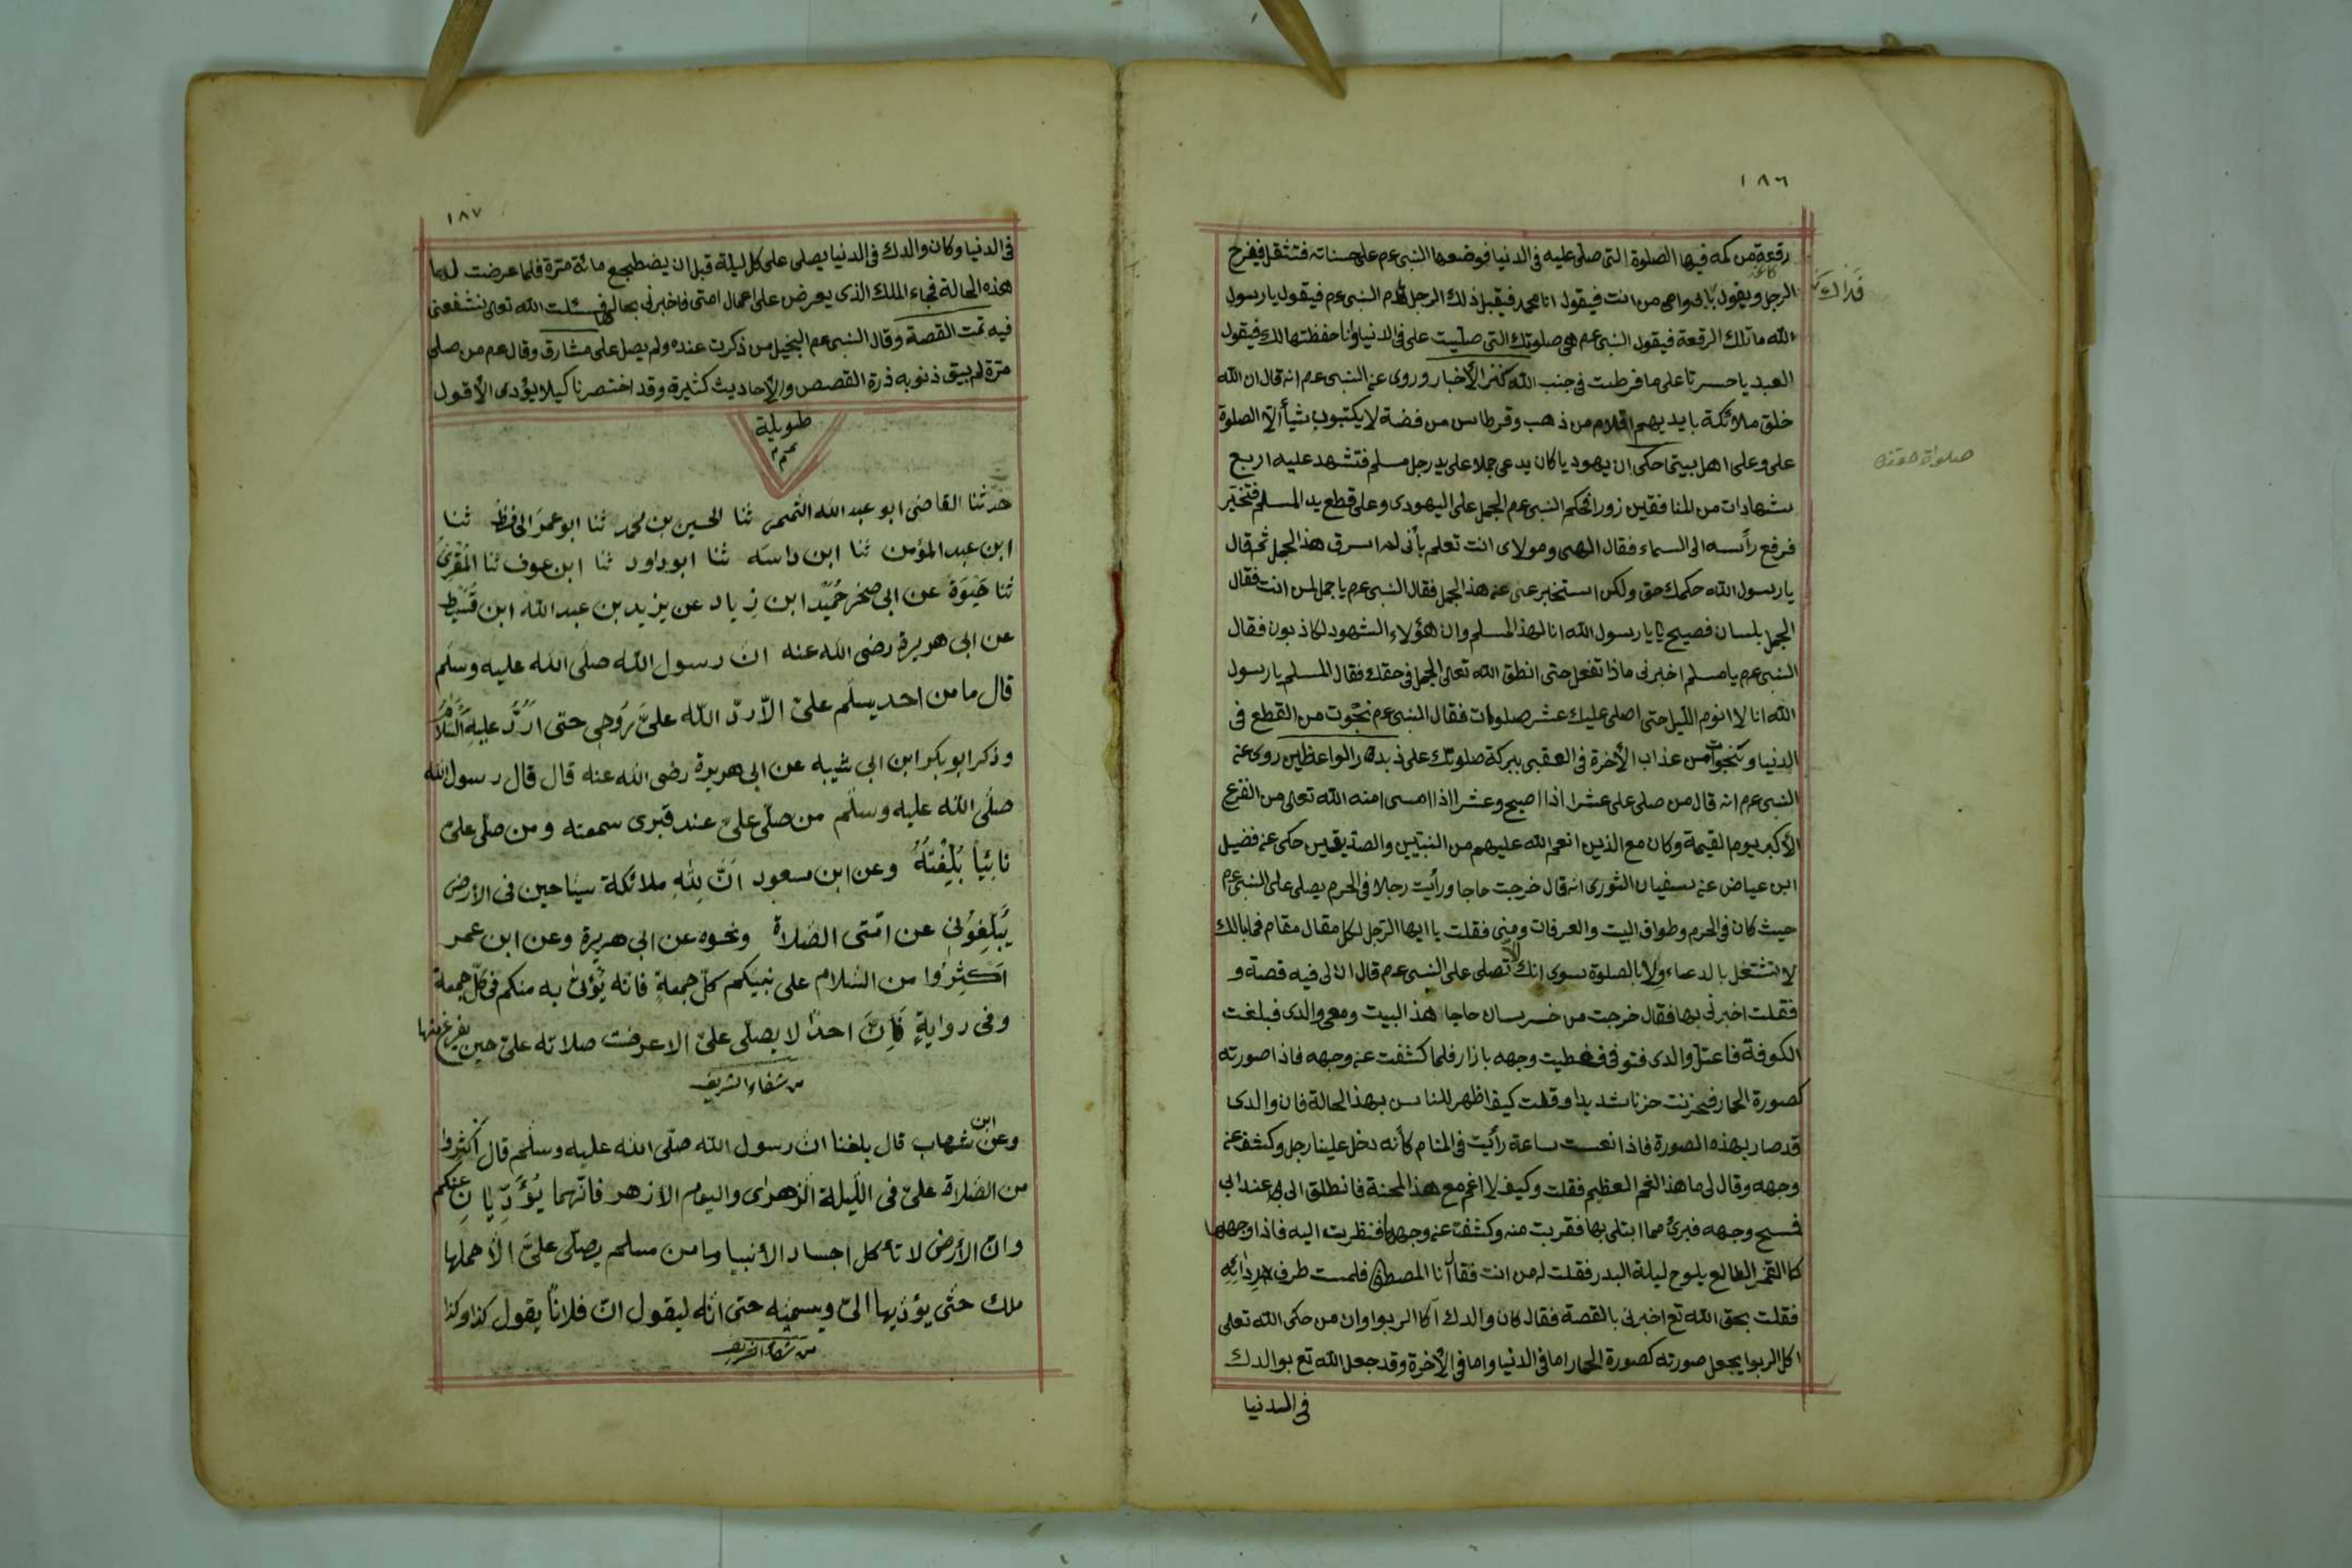 ١٨٦
رقعة من كمه فيها الصلوة التى صلى عليه فى الدنيا فوضعها النبى عم على حسناته فتثقل فيفرح
الرجل ويقول بابى وامى من انت فيقول انا محمد فيقبل ذلك الرجل قدم النبى عم فيقول يا رسول
الله ما تلك الرقعة فيقول النبى عم هى صلوتك التى صليت على فى الدنيا وانا حفظتها لك فيقول
العبد يا حسرتا على ما فرطت فى جنب الله كنز الأخبار وروى عن النبى عم انه قال ان الله
خلق ملائكة بايديهم اقلام من ذهب وقرطاس من فضة لا يكتبون شيأ الا الصلوة
على وعلى اهل بيتى حكى ان يهوديا كان يدعى جملا على يد رجل مسلم فتشهد عليه اربع
شهادات من المنافقين زورا فحكم النبى عم الجمل على اليهودى وعلى قطع يد المسلم فتخير
فرفع رأسه الى السماء فقال الهى ومولاى انت تعلم بأنى لم اسرق هذا الجمل ثم قال
يا رسول الله حكمك حق ولكن استخبر عنى عن هذا الجمل فقال النبى عم يا جمل لمن انت فقال
الجمل بلسان فصيح يا رسول الله انا لهذا المسلم وان هؤلاء الشهود لكاذبون فقال
النبى عم يا مسلم اخبرنى ماذا تفعل حتى انطق الله تعالى الجمل فى حقك فقال المسلم يا رسول
الله انا لا انوم الليل حتى اصلى عليك عشر صلوات فقال النبى عم نجوت من القطع فى
الدنيا وتنجو من عذاب الأخرة فى العقبى ببركة صلوتك على ذبدة الواعظين روى عن
النبى عم انه قال من صلى على عشرا اذا اصبح وعشرا اذا امسى امنه الله تعالى من الفزع
الأكبر يوم القيمة وكان مع الذين انعم الله عليهم من النبيين والصديقين حكى عن فضيل
ابن عياض عن سفيان الثورى انه قال خرجت حاجا ورأيت رجلا فى الحرم يصلى على النبى عم
حيث كان فى الحرم وطواف البيت والعرفات ومنى فقلت يا ايها الرجل لكل مقال مقام فما بالك
لا تشتغل بالدعاء ولا بالصلوة سوى انك تصلى على النبى عم قال ان لى فيه قصة و
فقلت اخبرنى بها فقال خرجت من خرسان حاجا هذا البيت ومعى والدى فبلغت
الكوفة فاعتل والدى فتوفى فغطيت وجهه بازار فلما كشفت عن وجهه فاذا صورته
كصورة الحمار فحزنت حزنا شديدا وقلت كيف اظهر للناس بهذا الحالة فان والدى
قد صار بهذه الصورة فاذا نعست ساعة رأيت فى المنام كأنه دخل علينا رجل وكشف عن
وجهه وقال لى ما هذا الغم العظيم فقلت وكيف لا اغم مع هذا المحنة فانطلق الى عند ابى
فمسح وجهه فبرئ مما ابتلى بها فقربت منه وكشفت عن وجهه فنظرت اليه فاذا وجهها
كالقمر الطالع يلوح ليلة البدر فقلت له من انت فقال انا المصطفى فلمست طرف ردائه
فقلت بحق الله تع اخبرنى بالقصة فقال كان والدك آكل الربوا وان من حكى الله تعلى
اكل الربوا يجعل صورته كصورة الحمار اما فى الدنيا واما فى الأخرة وقد جعل الله تع بوالدك
فى الدنيا
١٨٧
فى الدنيا وكان والدك فى الدنيا يصلى على كل ليلة قبل ان يضطجع مائة مرة فلما عرضت لها
هذه الحالة فجاء الملك الذى يعرض على اعمال امتى فاخبرنى بحالها فسئلت الله تعالى نشفعنى
فيه تمت القصة وقال النبى عم البخيل من ذكرت عنده ولم يصل على مشارق وقال عم من صلى
مرة لم يبق ذنوبه ذرة القصص والأحاديث كثيرة وقد اختصرنا كيلا يؤدى الأقول
طويلة
حدثنا القاضى ابو عبد الله التميمى ثنا الحسين بن محمد ثنا ابو عمر الحافظ ثنا
ابن عبد المؤمن ثنا ابن داسه ثنا ابو داود ثنا ابن عوف ثنا المقرئ
ثنا حيوة عن ابى صخر حميد ابن زياد عن يزيد بن عبد الله ابن قسيط
عن ابى هريرة رضى الله عنه ان رسول الله صلى الله عليه وسلم
قال ما من احد يسلم على الا رد الله على روحى حتى ارد عليه السلام
وذكر ابو بكر ابن ابى شيبه عن ابى هريرة رضى الله عنه قال قال رسول الله
صلى الله عليه وسلم من صلى على عند قبرى سمعته ومن صلى على
نائيا بلغته وعن ابن مسعود ان لله ملائكة سياحين فى الأرض
يبلغونى عن امتى الصلاة ونحوه عن ابى هريرة وعن ابن عمر
اكثروا من السلام على نبيكم كل جمعة فانه يؤتى به منكم فى كل جمعة
وفى رواية فان احدا لا يصلى على الا عرضت صلاته على حين يفرغ منها
من شفاء الشريف
وعن ابن شهاب قال بلغنا ان رسول الله صلى الله عليه وسلم قال اكثروا
من الصلاة على فى الليلة الزهراى واليوم الأزهر فانهما يؤديان عنكم
وان الأرض لا تأكل اجساد الأنبيا وما من مسلم يصلى على الا حملها
ملك حتى يؤديها الى ويسميه حتى انه ليقول ان فلانا يقول كذا وكذا
من شفاء الشريف